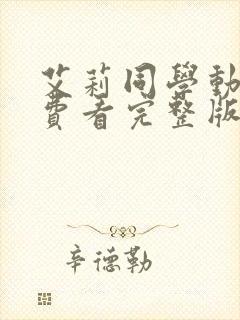 艾莉同學動
費看完整版
辛德勒